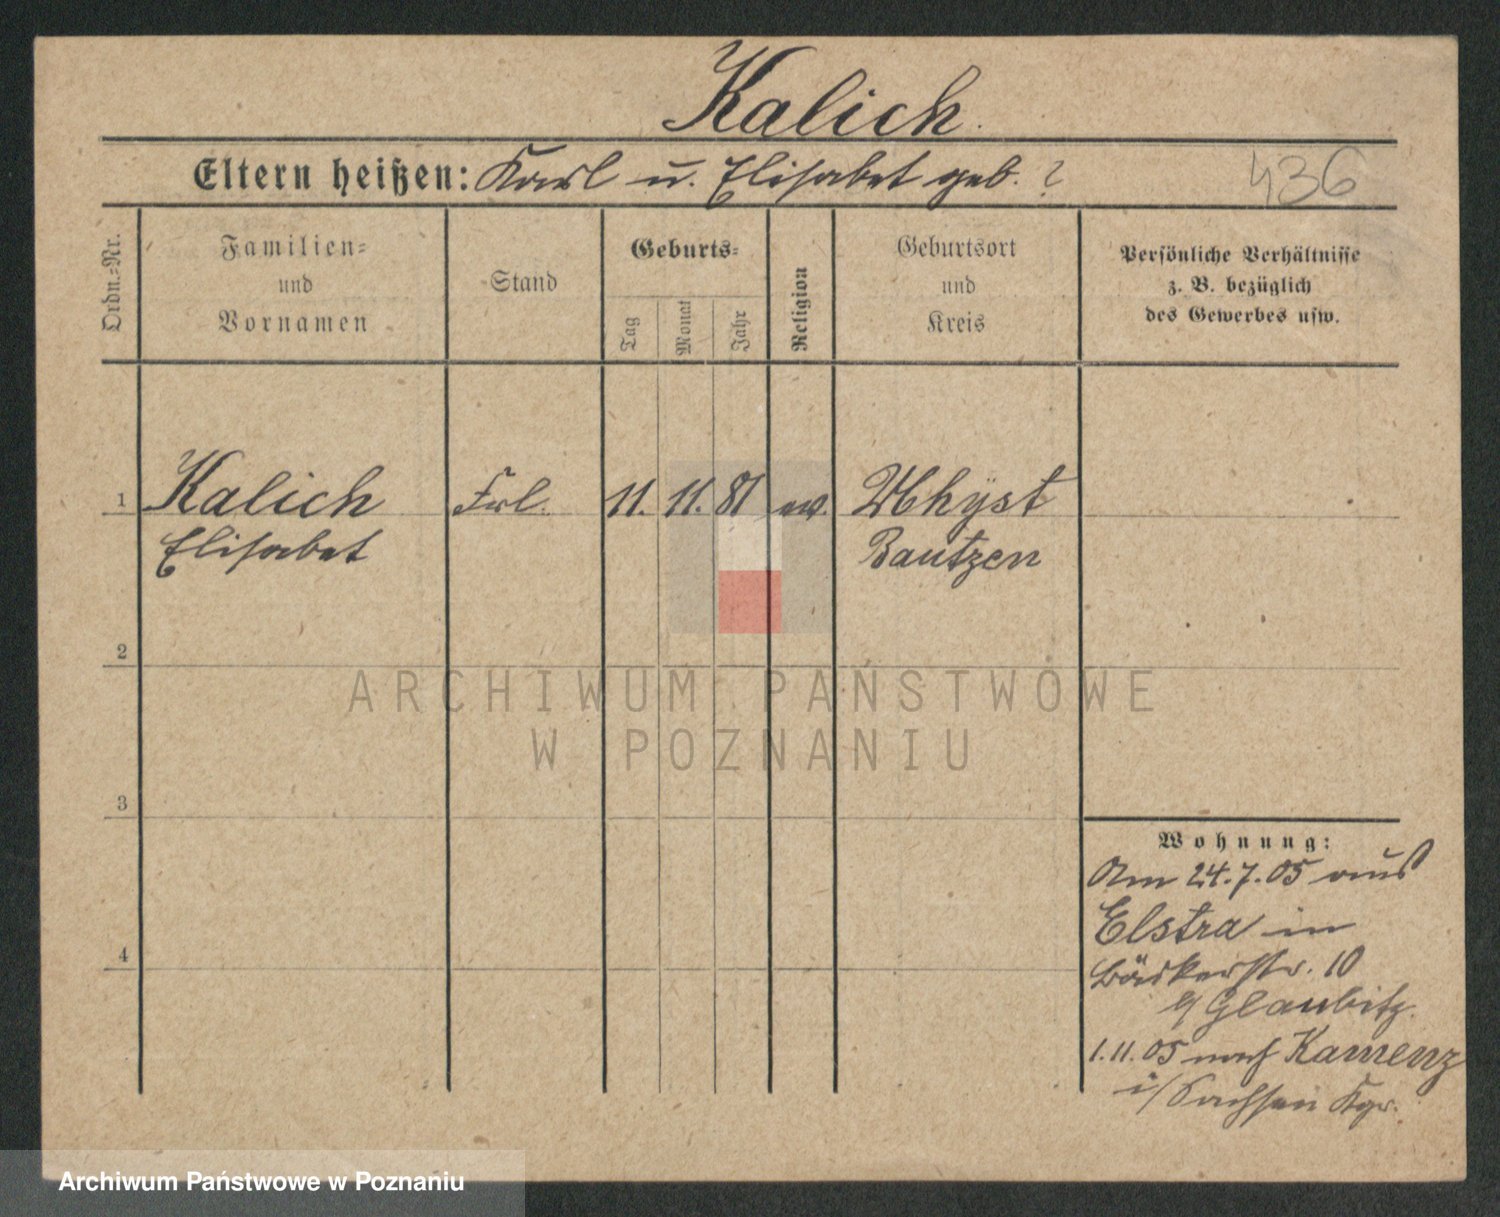 Kalich.
Eltern heißen: Karl u. Elisabet geb. ?
436
Ordn.=Nr.
Familien=
und
Vornamen
Stand
Geburts=
Tag
Monat
Jahr
Religion
Geburtsort
und
Kreis
Persönliche Verhältnisse
z. B. bezüglich
des Gewerbes usw.
1 Kalich Frl. 11. 11. 81 ev. Uhyst
Elisabet Bautzen
2
ARCHIWUM PAŃSTWOWE
W POZNANIU
3
Wohnung:
Am 24.7.05 aus
Elstra in
4
Bäckerstr. 10
b/ Glaubitz.
1.11.05 nach Kamenz
i/ Sachsen Kgr.
Archiwum Państwowe w Poznaniu